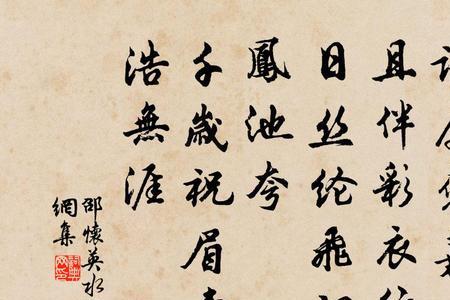 且伴彩衣
日丝纶飛
鳳池夸
千歲祝眉
浩無涯
邵懷英水
網集